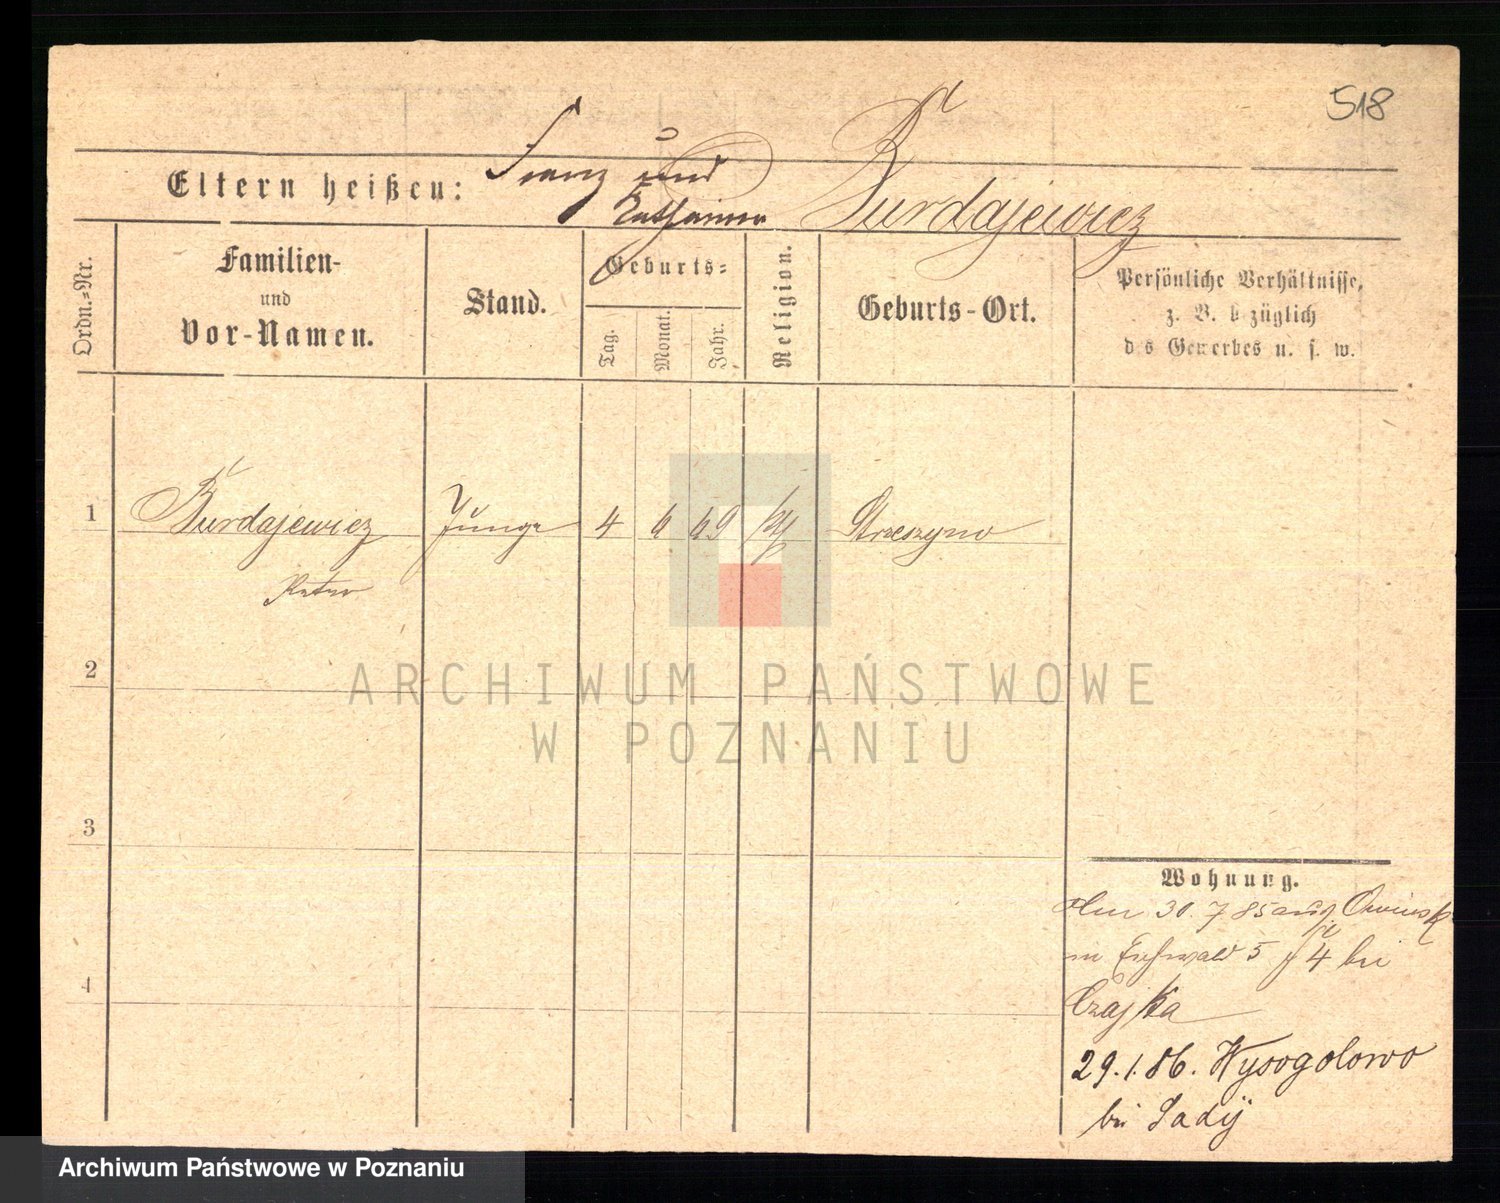 518
Eltern heißen: Franz und Burdajewicz
Catharina
Ordn.=Nr.
Familien-
und
Vor-Namen.
Stand.
Geburts=
Tag.
Monat.
Jahr.
Religion.
Geburts-Ort.
Persönliche Verhältnisse,
z. B. bezüglich
des Gewerbes u. s. w.
1 Burdajewicz Junge 4 6 69 Streszyno
Peter
2
ARCHIWUM PAŃSTWOWE
W POZNANIU
3
4
Wohnung.
30. 7 85 aus Owinsk
in Eichwald 5 4 bei
Czajka
29.1.86. Wysogolowo
bei Sady
Archiwum Państwowe w Poznaniu